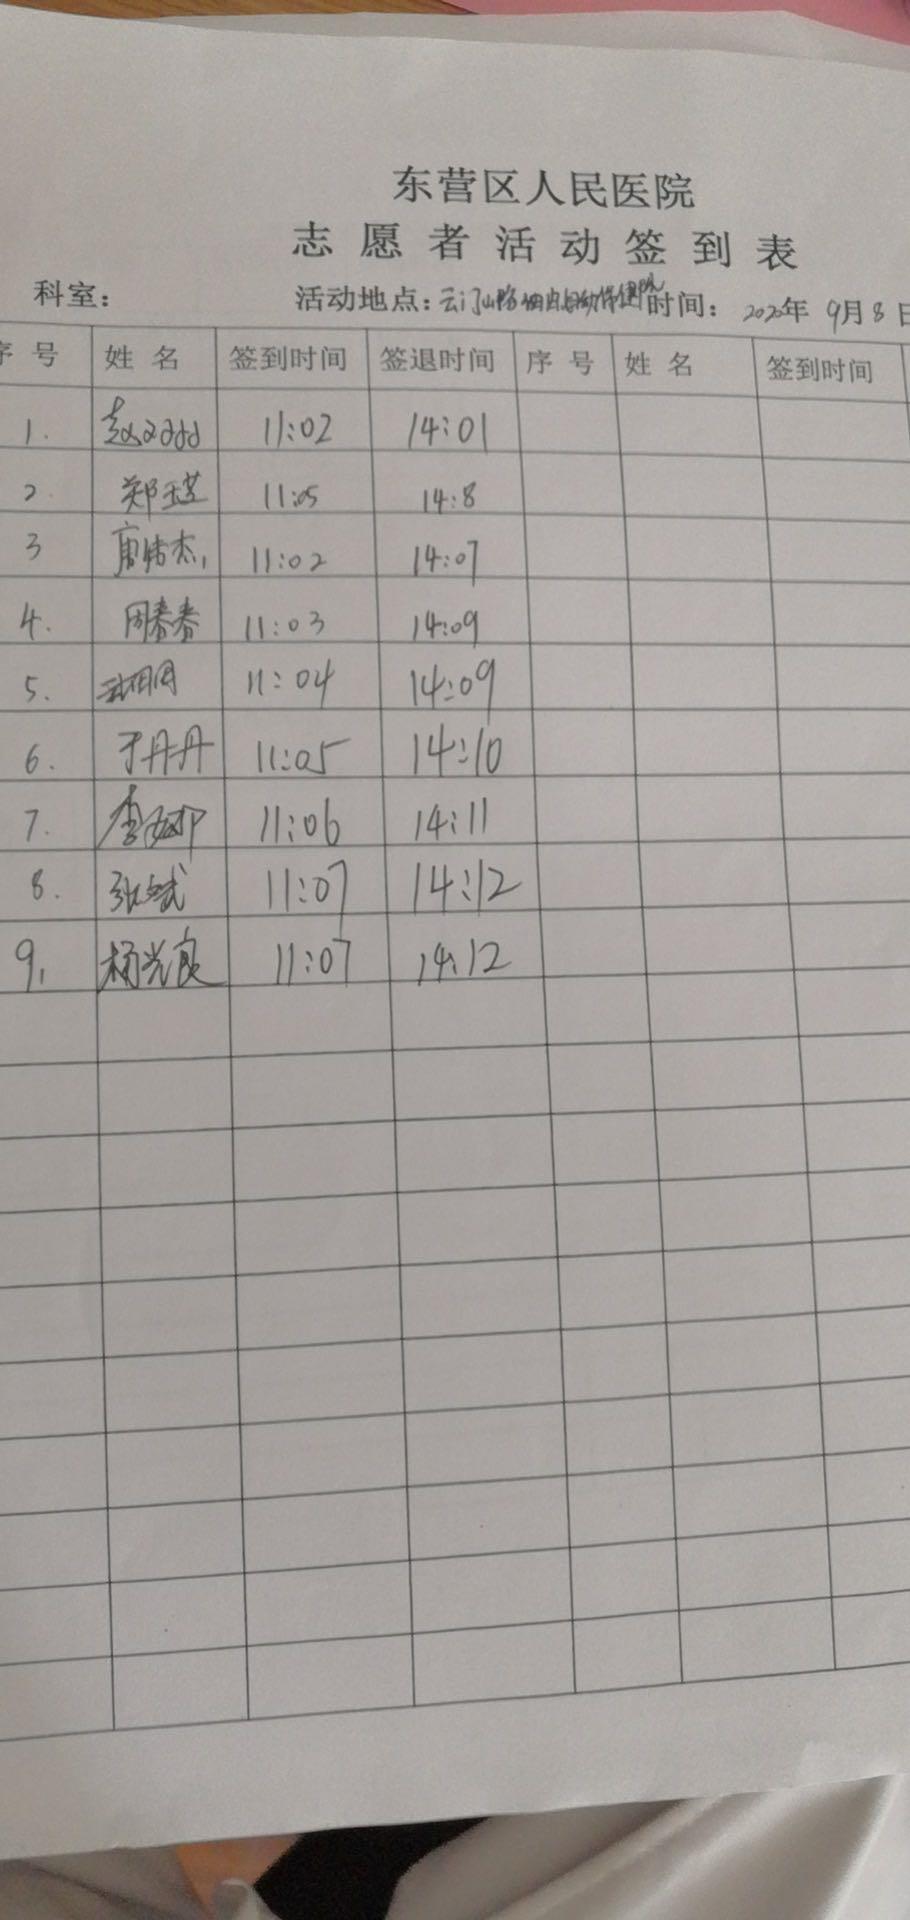 东营区人民医院
志愿者活动签到表
科室： 活动地点：云门山路 时间：2020年 9月8日
序号 姓名 签到时间 签退时间 序号 姓名 签到时间
1. 11:02 14:01
2. 郑玉芸 11:05 14:8
3 唐伟杰 11:02 14:07
4. 周春春 11:03 14:09
5. 11:04 14:09
6. 于丹丹 11:05 14:10
7. 李娜 11:06 14:11
8. 张斌 11:07 14:12
9. 杨光良 11:07 14:12